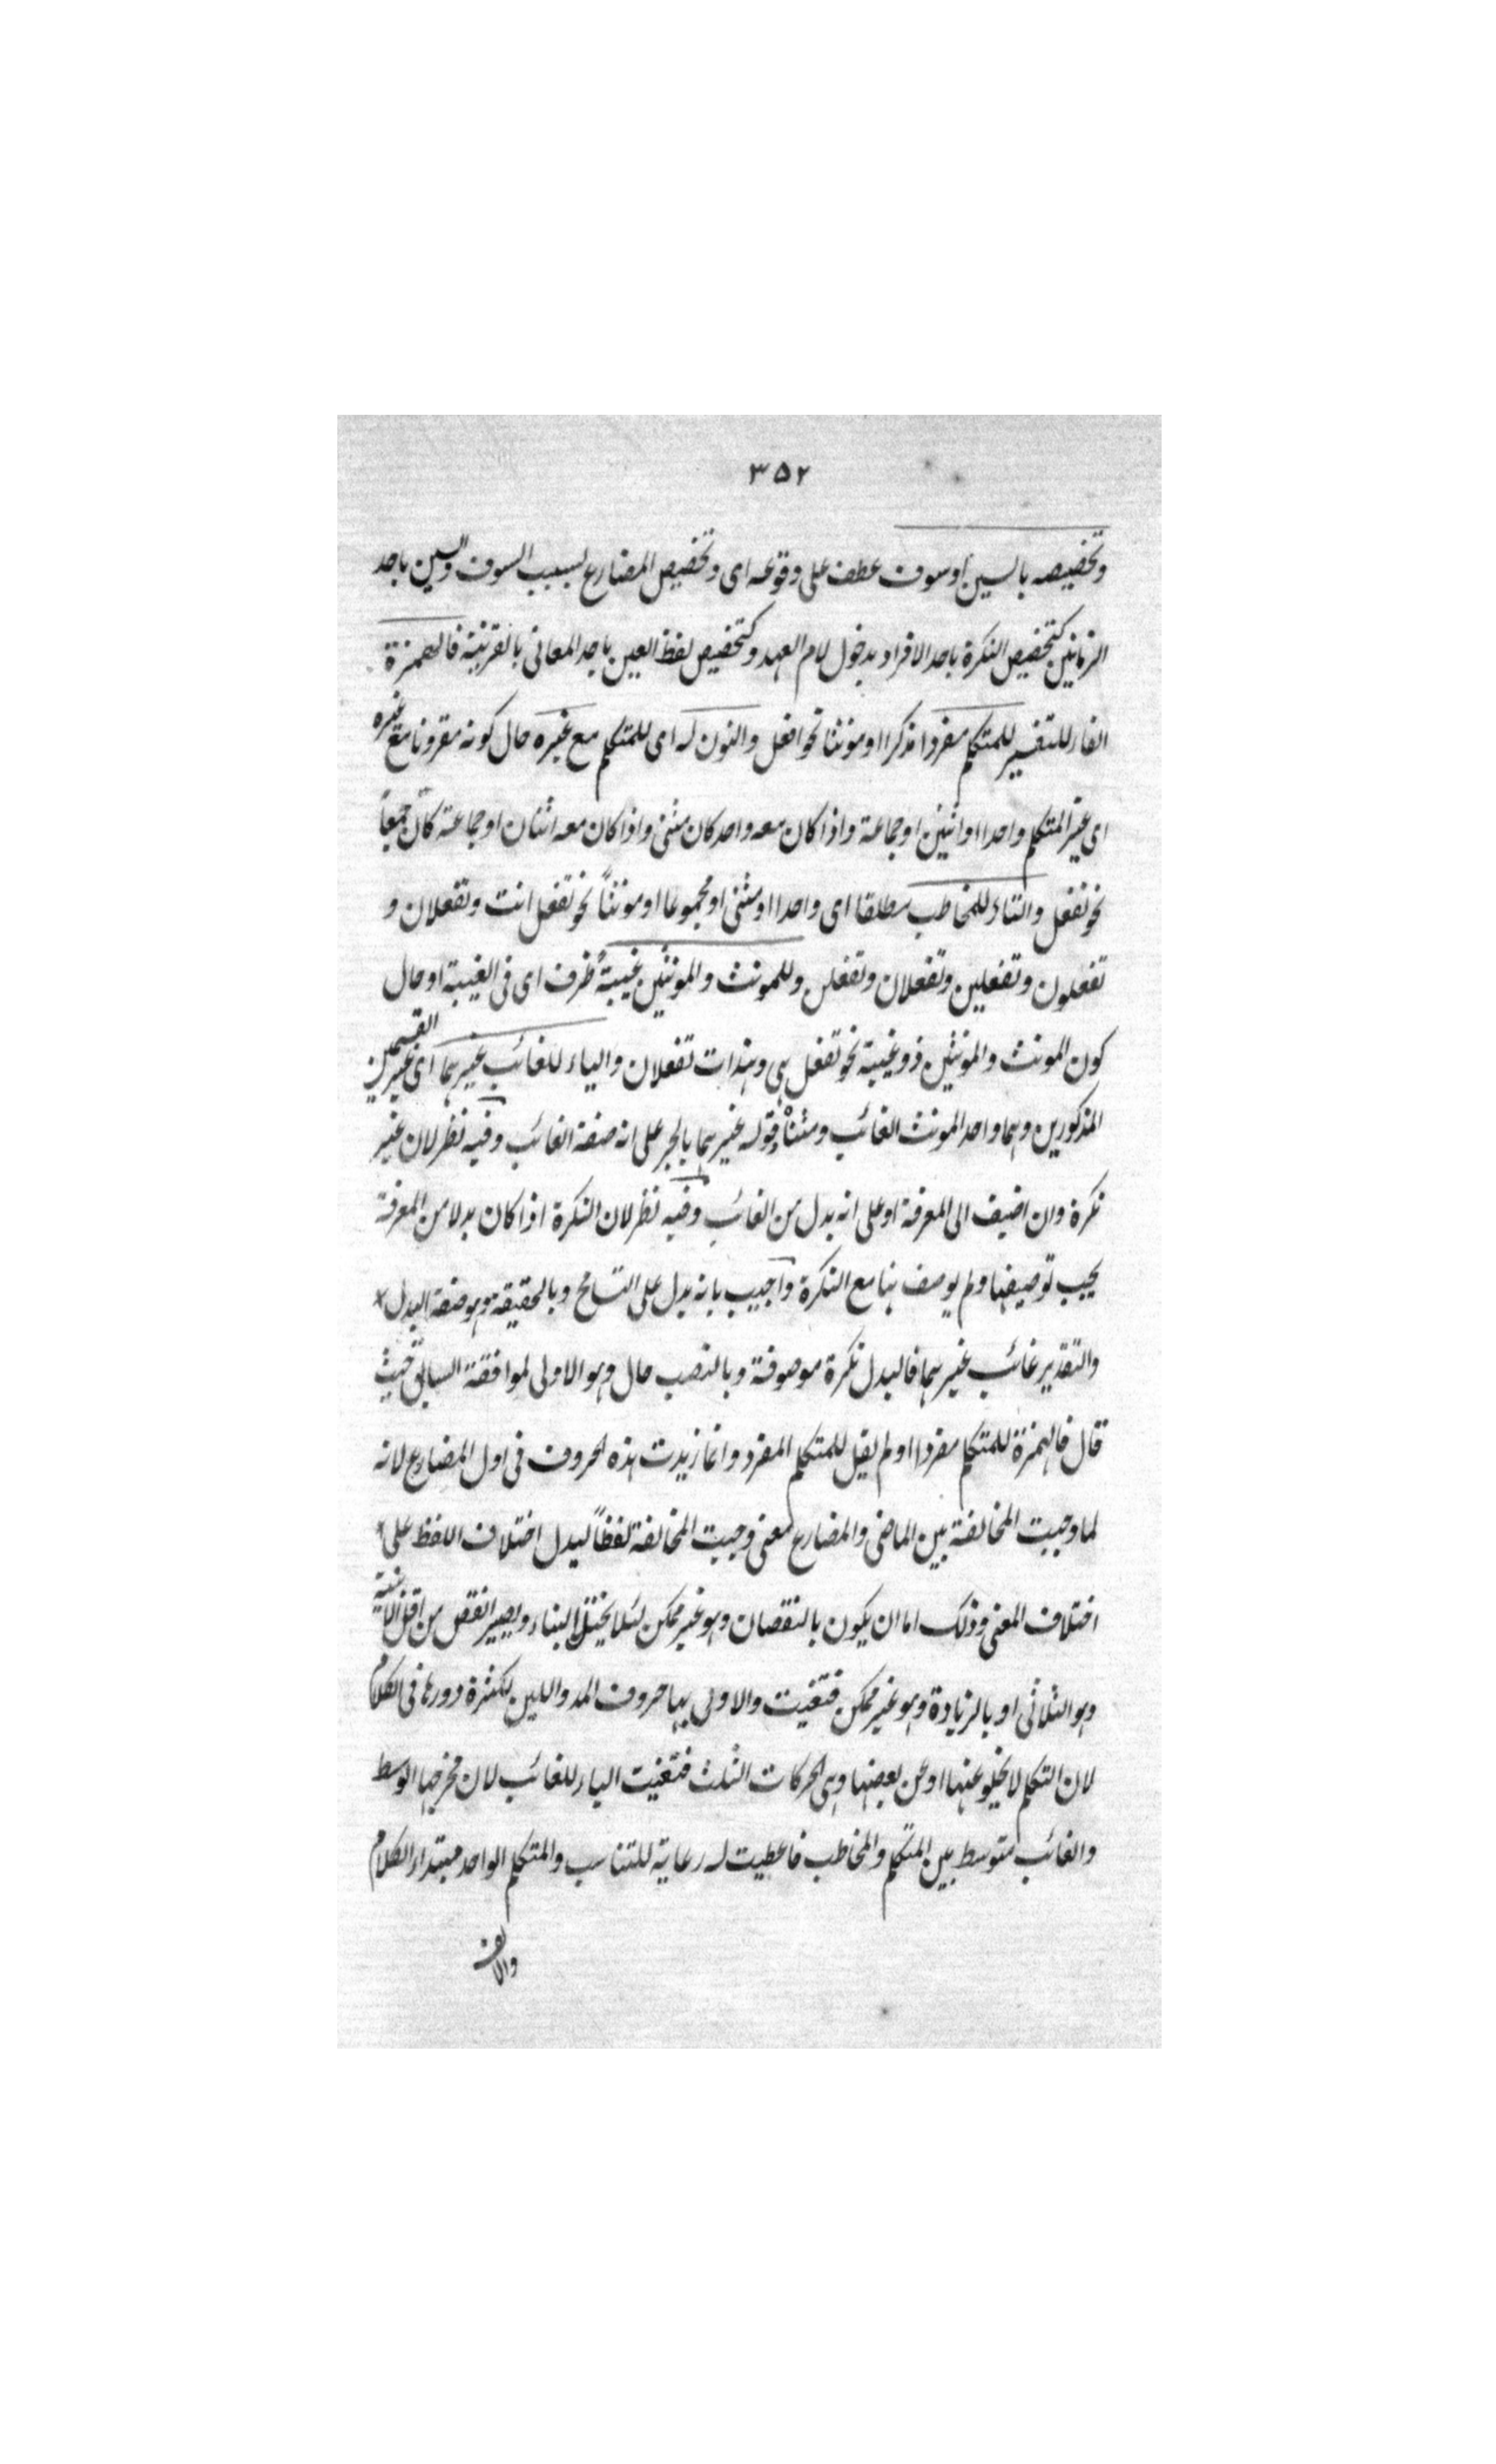 ٣٥٢
وتخصيصه بالسين اوسوف عطف على وقوعه اى وتخصيص المضارع بسبب السوف والسين باحد
الزمانين كتخصيص النكرة باحد الافراد بدخول لام العهد وكتخصيص لفظ العين باحد المعانى بالقرينة فالهمزة
الفاء للتفسير للمتكلم مفردا مذكرا اومونثا نحو افعل والنون له اى للمتكلم مع غيره حال كونه مقرونا مع غيره
اى غير المتكلم واحدا اواثنين اوجماعة واذا كان معه واحد كان مثنى واذا كان معه اثنان اوجماعة كان جمعاً
نحو نفعل والتاء للمخاطب مطلقا اى واحدا اومثنى اومجموعا اومونثاً نحو تفعل انت وتفعلان و
تفعلون وتفعلين وتفعلان وتفعلن وللمونث والمونثين غيبةً ظرف اى فى الغيبة اوحال
كون المونث والمونثين ذو غيبة نحو تفعل هى وهندات تفعلان والياء للغائب غيرهما اى غير القسمين
المذكورين وهما واحد المونث الغائب ومثناه وقوله غيرهما بالجر على انه صفة الغائب وفيه نظر لان غير
نكرة وان اضيف الى المعرفة اوعلى انه بدل من الغائب وفيه نظر لان النكرة اذا كان بدلا من المعرفة
يجب توصيفها ولم يوصف هنا مع النكرة واجيب بانه بدل على التسامح وبالحقيقة هو صفة البدل
والتقدير غائب غيرهما فالبدل نكرة موصوفة وبالنصب حال وهو الاولى لموافقة السابق حيث
قال فالهمزة للمتكلم مفردا اولم يقل للمتكلم المفرد وانما زيدت هذه الحروف فى اول المضارع لانه
لما وجبت المخالفة بين الماضى والمضارع معنى وجبت المخالفة لفظاً ليدل اختلاف اللفظ على
اختلاف المعنى وذلك اما ان يكون بالنقصان وهو غير ممكن لئلا يختل البناء ويصير انقص من اقل الابنية
وهو الثلاثى او بالزيادة وهو غير ممكن فتعينت والاولى بها حروف المد واللين لكثرة دورها فى الكلام
لان التكلم لا يخلو عنها اوعن بعضها وهى الحركات الثلث فتعينت الياء للغائب لان مخرجها الوسط
والغائب متوسط بين المتكلم والمخاطب فاعطيت له رعاية للتناسب والمتكلم الواحد مبتداء الكلام
والالف